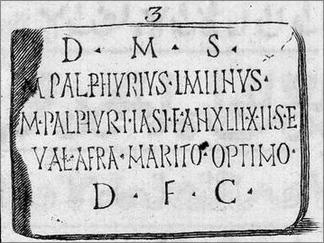 3
D · M · S ·
M PALPHVRIVS · IMIIHVS ·
M · PALPIVRI · IASI · F · AHXLIII · X · IIS · E
VAL · AFRA · MARITO · OPTIMO ·
D · F · C ·